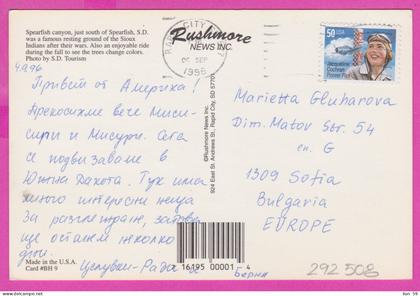 Spearfish canyon, just south of Spearfish, S.D.
was a famous resting ground of the Sioux
Indians after their wars. Also an enjoyable ride
during the fall to see the trees change colors.
Photo by S.D. Tourism
4.9.96
Привет от Америка!
Прекосихме вече Миси-
сипи и Мисури. Сега
се подвизаваме в
Южна Дакота. Тук има
много интересни неща
за разглеждане, затова
ще останем няколко
дни.
Целувки - Рада и Берни
Made in the U.S.A.
Card #BH 9
Rushmore
NEWS INC.
RAPID CITY
SEP
1996
©Rushmore News Inc.
924 East St. Andrews St., Rapid City, SD 57701
16195 00001 4
50 USA
Jacqueline
Cochran
Pioneer Pilot
Marietta Gluharova
Dim. Matov Str. 54
en. G
1309 Sofia
Bulgaria
EUROPE
292 508